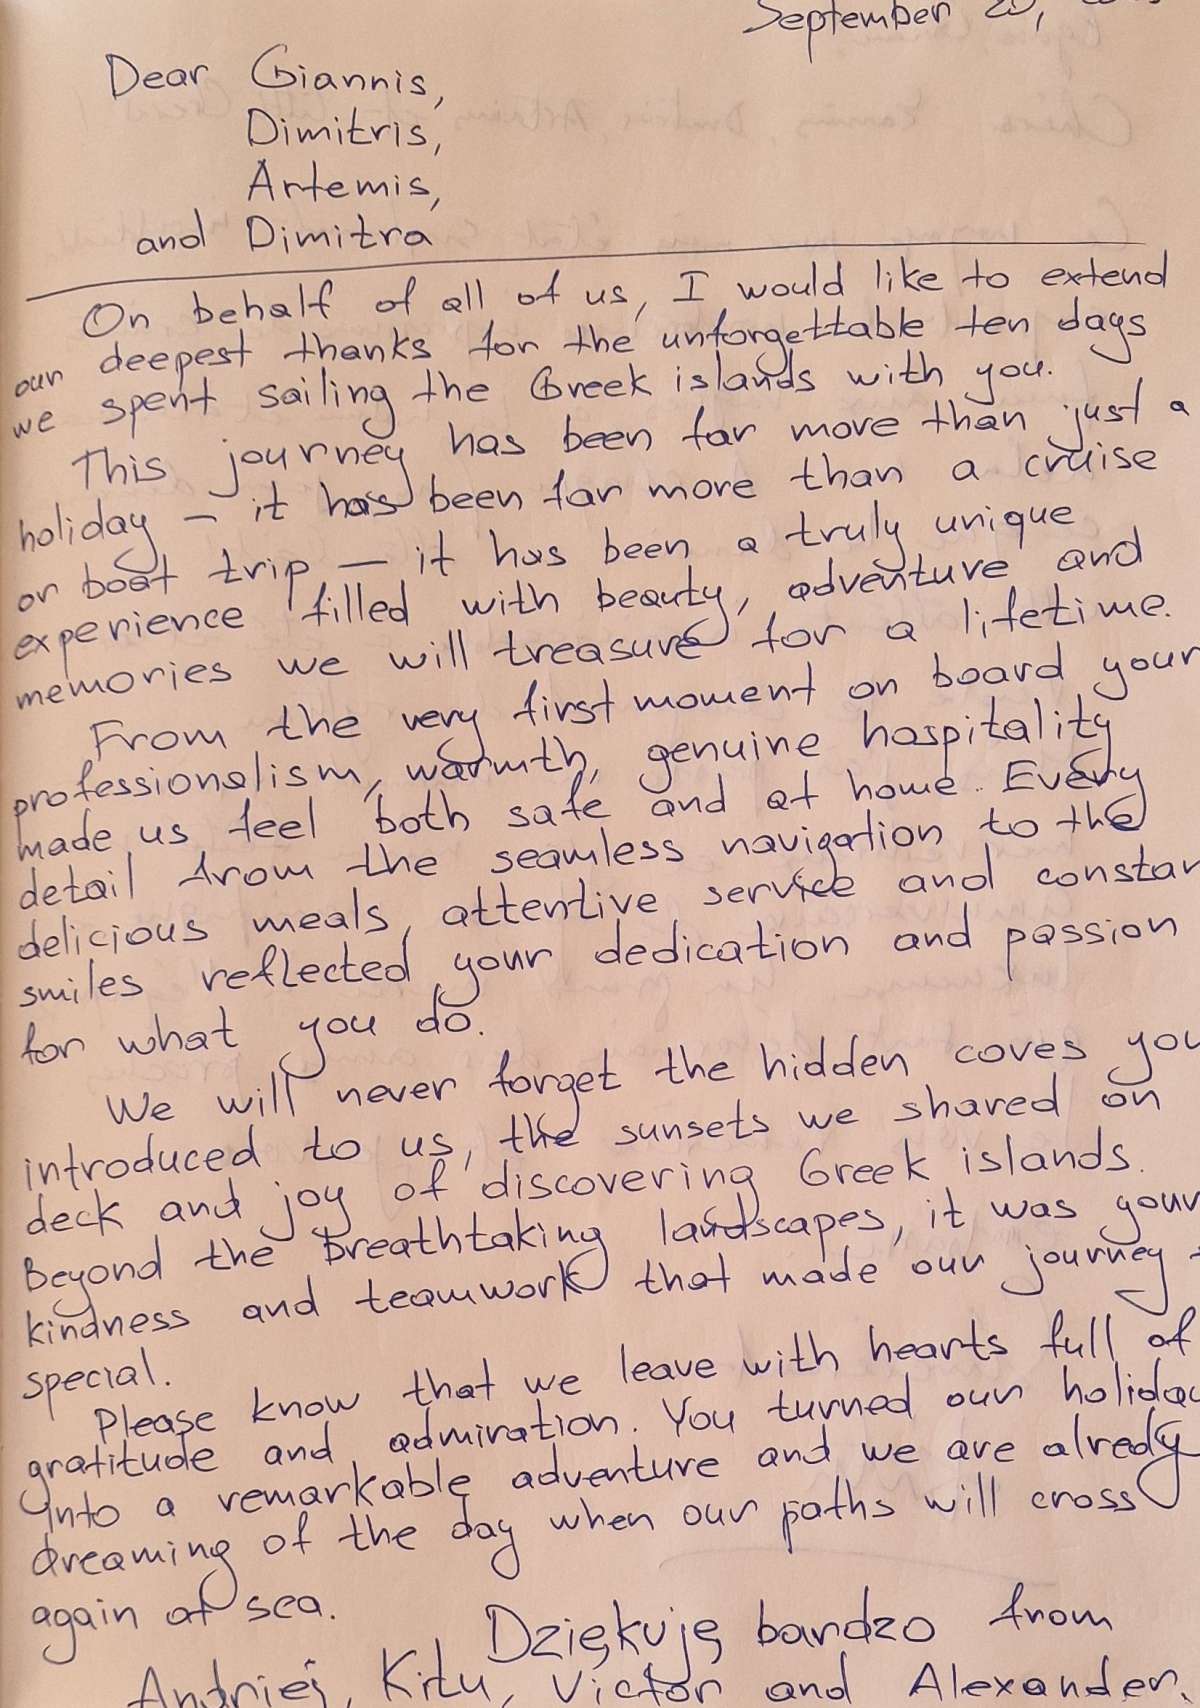 September
Dear Giannis,
Dimitris,
Artemis,
and Dimitra
On behalf of all of us, I would like to extend
our deepest thanks for the unforgettable ten days
we spent sailing the Greek islands with you.
This journey has been far more than just a
holiday – it has been far more than a cruise
or boat trip – it has been a truly unique
experience filled with beauty, adventure and
memories we will treasure for a lifetime.
From the very first moment on board your
professionalism, warmth, genuine hospitality
made us feel both safe and at home. Every
detail from the seamless navigation to the
delicious meals, attentive service and constan
smiles reflected your dedication and passion
for what you do.
We will never forget the hidden coves you
introduced to us, the sunsets we shared on
deck and joy of discovering Greek islands.
Beyond the breathtaking landscapes, it was your
kindness and teamwork that made our journey
special.
Please know that we leave with hearts full of
gratitude and admiration. You turned our holiday
into a remarkable adventure and we are alredy
dreaming of the day when our paths will cross
again at sea.
Dziękuję bardzo from
Victor and Alexander.